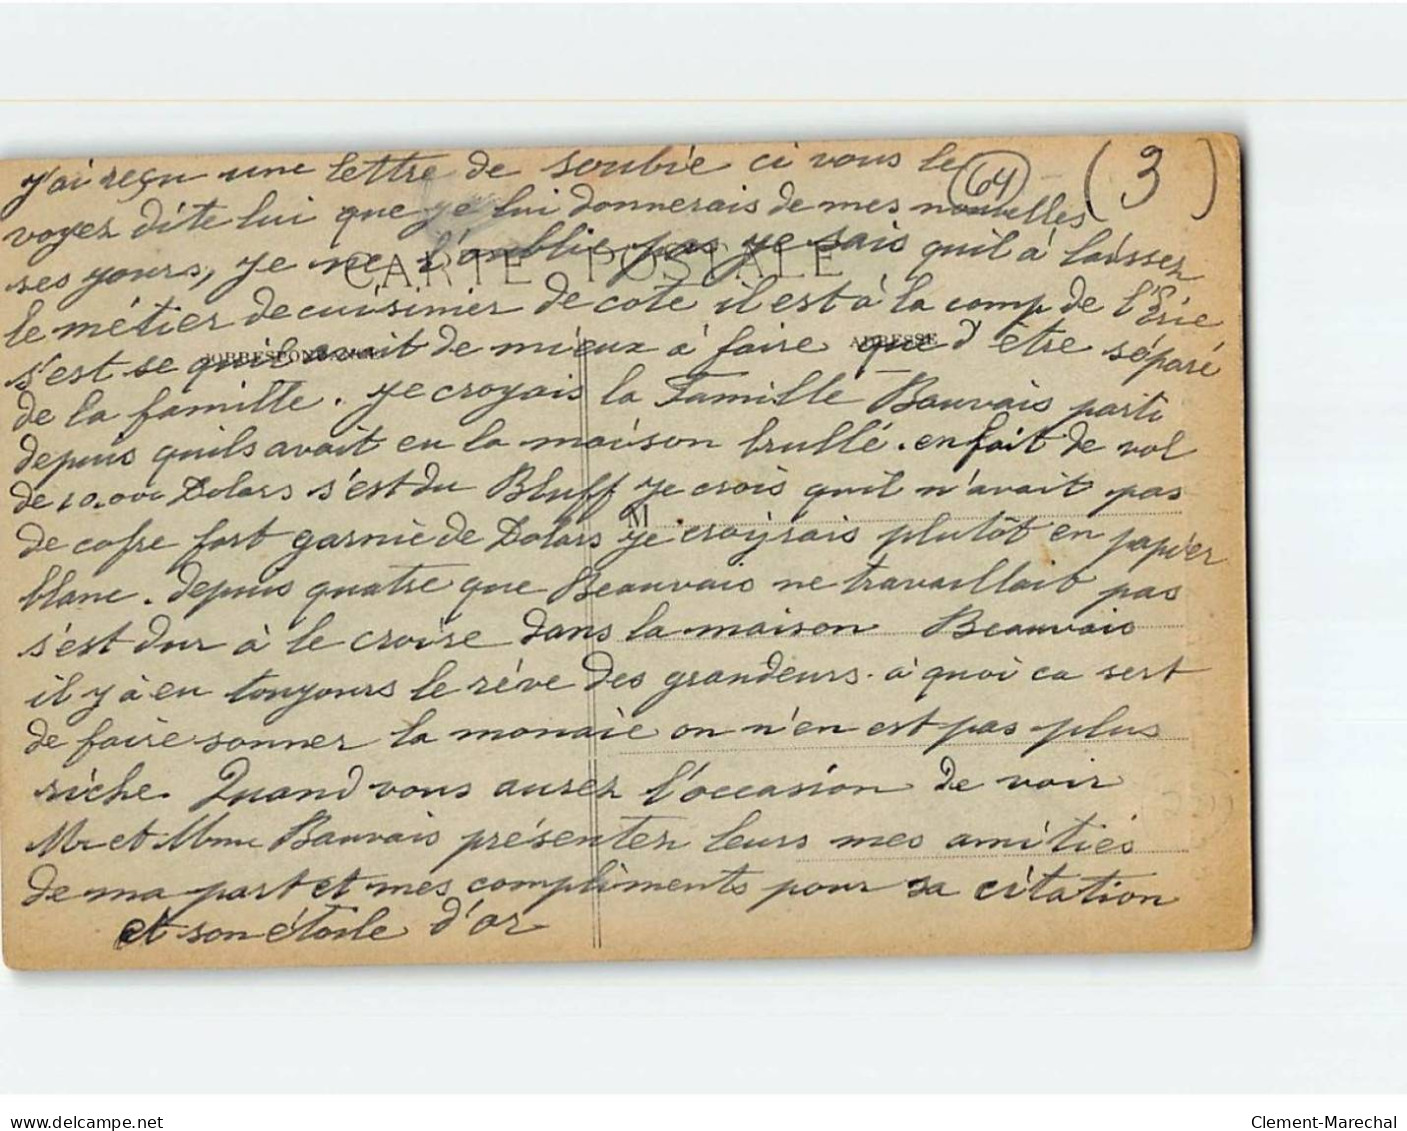 (3)
64
j'ai reçu une lettre de soubie ci vous le
voyez dite lui que je lui donnerais de mes nouvelles
ses yours, je ne l'oublie pas je sais quil à laisser
CARTE POSTALE
le métier de cuisinier de cote il est à la comp de l'Erie
s'est se quil avait de mieux à faire que d'être séparé
CORRESPONDANCE
ADRESSE
de la famille. je croyais la Famille Bauvais parti
depuis quils avait eu la maison brullé. en fait de vol
de 10.000 Dolars s'est du Bluff je crois quil n'avait pas
M
de cofre fort garnie de Dolars je croyrais plutôt en papier
blanc. depuis quatre que Beauvais ne travaillait pas
s'est dur à le croire dans la maison Beauvais
il y à eu touyours le réve des grandeurs. à quoi ca sert
de faire sonner la monaie on n'en est pas plus
riche. Quand vous aurez l'occasion de voir
Mr et Mme Bauvais présenter leurs mes amitiés
de ma part et mes compliments pour sa citation
et son étoile d'or
delcampe.net
Clement-Marechal